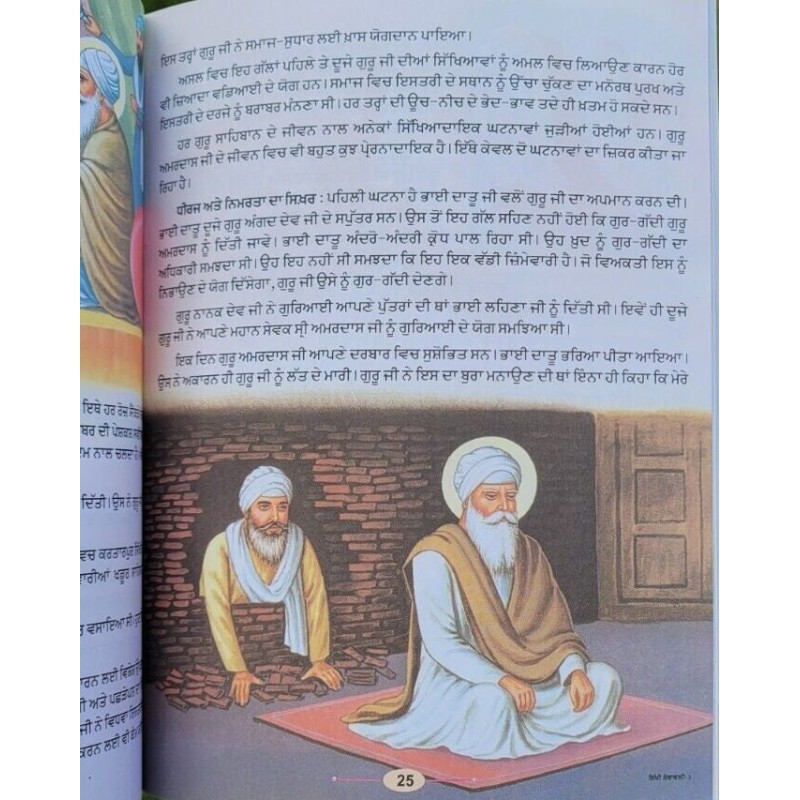 ਇਸ ਤਰ੍ਹਾਂ ਗੁਰੂ ਜੀ ਨੇ ਸਮਾਜ-ਸੁਧਾਰ ਲਈ ਖ਼ਾਸ ਯੋਗਦਾਨ ਪਾਇਆ।
ਅਸਲ ਵਿਚ ਇਹ ਗੱਲਾਂ ਪਹਿਲੇ ਤੇ ਦੂਜੇ ਗੁਰੂ ਜੀ ਦੀਆਂ ਸਿੱਖਿਆਵਾਂ ਨੂੰ ਅਮਲ ਵਿਚ ਲਿਆਉਣ ਕਾਰਨ ਹੋਰ
ਵੀ ਜ਼ਿਆਦਾ ਵਡਿਆਈ ਦੇ ਯੋਗ ਹਨ। ਸਮਾਜ ਵਿਚ ਇਸਤਰੀ ਦੇ ਸਥਾਨ ਨੂੰ ਉੱਚਾ ਚੁੱਕਣ ਦਾ ਮਨੋਰਥ ਪੁਰਖ ਅਤੇ
ਇਸਤਰੀ ਦੇ ਦਰਜੇ ਨੂੰ ਬਰਾਬਰ ਮੰਨਣਾ ਸੀ। ਹਰ ਤਰ੍ਹਾਂ ਦੀ ਊਚ-ਨੀਚ ਦੇ ਭੇਦ-ਭਾਵ ਤਦੇ ਹੀ ਖ਼ਤਮ ਹੋ ਸਕਦੇ ਸਨ।
ਹਰ ਗੁਰੂ ਸਾਹਿਬਾਨ ਦੇ ਜੀਵਨ ਨਾਲ ਅਨੇਕਾਂ ਸਿੱਖਿਆਦਾਇਕ ਘਟਨਾਵਾਂ ਜੁੜੀਆਂ ਹੋਈਆਂ ਹਨ। ਗੁਰੂ
ਅਮਰਦਾਸ ਜੀ ਦੇ ਜੀਵਨ ਵਿਚ ਵੀ ਬਹੁਤ ਕੁਝ ਪ੍ਰੇਰਨਾਦਾਇਕ ਹੈ। ਇੱਥੇ ਕੇਵਲ ਦੋ ਘਟਨਾਵਾਂ ਦਾ ਜ਼ਿਕਰ ਕੀਤਾ ਜਾ
ਰਿਹਾ ਹੈ।
ਧੀਰਜ ਅਤੇ ਨਿਮਰਤਾ ਦਾ ਸਿਖ਼ਰ : ਪਹਿਲੀ ਘਟਨਾ ਹੈ ਭਾਈ ਦਾਤੂ ਜੀ ਵਲੋਂ ਗੁਰੂ ਜੀ ਦਾ ਅਪਮਾਨ ਕਰਨ ਦੀ।
ਭਾਈ ਦਾਤੂ ਦੂਜੇ ਗੁਰੂ ਅੰਗਦ ਦੇਵ ਜੀ ਦੇ ਸਪੁੱਤਰ ਸਨ। ਉਸ ਤੋਂ ਇਹ ਗੱਲ ਸਹਿਣ ਨਹੀਂ ਹੋਈ ਕਿ ਗੁਰ-ਗੱਦੀ ਗੁਰੂ
ਅਮਰਦਾਸ ਨੂੰ ਦਿੱਤੀ ਜਾਵੇ। ਭਾਈ ਦਾਤੂ ਅੰਦਰੋ-ਅੰਦਰੀ ਕ੍ਰੋਧ ਪਾਲ ਰਿਹਾ ਸੀ। ਉਹ ਖ਼ੁਦ ਨੂੰ ਗੁਰ-ਗੱਦੀ ਦਾ
ਅਧਿਕਾਰੀ ਸਮਝਦਾ ਸੀ। ਉਹ ਇਹ ਨਹੀਂ ਸੀ ਸਮਝਦਾ ਕਿ ਇਹ ਇਕ ਵੱਡੀ ਜ਼ਿੰਮੇਵਾਰੀ ਹੈ। ਜੋ ਵਿਅਕਤੀ ਇਸ ਨੂੰ
ਨਿਭਾਉਣ ਦੇ ਯੋਗ ਦਿੱਸੇਗਾ, ਗੁਰੂ ਜੀ ਉਸੇ ਨੂੰ ਗੁਰ-ਗੱਦੀ ਦੇਣਗੇ।
ਗੁਰੂ ਨਾਨਕ ਦੇਵ ਜੀ ਨੇ ਗੁਰਿਆਈ ਆਪਣੇ ਪੁੱਤਰਾਂ ਦੀ ਥਾਂ ਭਾਈ ਲਹਿਣਾ ਜੀ ਨੂੰ ਦਿੱਤੀ ਸੀ। ਇਵੇਂ ਹੀ ਦੂਜੇ
ਗੁਰੂ ਜੀ ਨੇ ਆਪਣੇ ਮਹਾਨ ਸੇਵਕ ਸ੍ਰੀ ਅਮਰਦਾਸ ਜੀ ਨੂੰ ਗੁਰਿਆਈ ਦੇ ਯੋਗ ਸਮਝਿਆ ਸੀ।
ਇਕ ਦਿਨ ਗੁਰੂ ਅਮਰਦਾਸ ਜੀ ਆਪਣੇ ਦਰਬਾਰ ਵਿਚ ਸੁਸ਼ੋਭਿਤ ਸਨ। ਭਾਈ ਦਾਤੂ ਭਰਿਆ ਪੀਤਾ ਆਇਆ।
ਉਸ ਨੇ ਅਕਾਰਨ ਹੀ ਗੁਰੂ ਜੀ ਨੂੰ ਲੱਤ ਦੇ ਮਾਰੀ। ਗੁਰੂ ਜੀ ਨੇ ਇਸ ਦਾ ਬੁਰਾ ਮਨਾਉਣ ਦੀ ਥਾਂ ਇੰਨਾ ਹੀ ਕਿਹਾ ਕਿ ਮੇਰੇ
ਇਥੇ ਹਰ ਰੋਜ਼
ਬਰ ਦੀ ਪੇਸ਼ਕਸ਼
ਮ ਨਾਲ ਚਲਦਾ ਹੈ
ਦਿੱਤੀ। ਉਸ ਨੇ ਗੁਰੂ
ਵਚ ਕਰਤਾਰਪੁਰ
ਾਰੀਆਂ ਖਡੂਰ
ਵਸਾਇਆ ਸੀ।
ਾਰਨ ਲਈ ਵਿਸ਼ੇਸ਼
ੀ ਅਤੇ ਪਛੜੇਪਨ ਦਾ
ਜੀ ਨੇ ਵਿਧਵਾ
ਕਰਨ ਲਈ ਵੀ
25